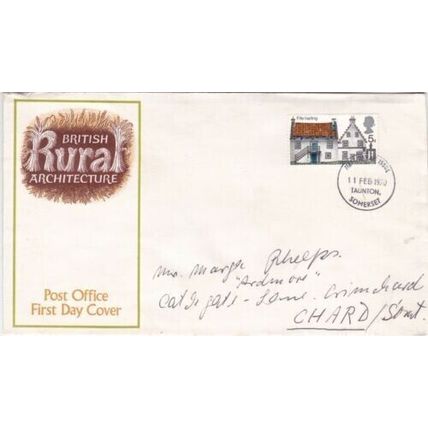 BRITISH
Rural
ARCHITECTURE
Post Office
First Day Cover
Fife harling
5d
11 FEB 1970
TAUNTON,
SOMERSET
Mrs. Marge Phelps.
"Ardmore"
Catchgate - Lane. Crimchard
CHARD/Somt.